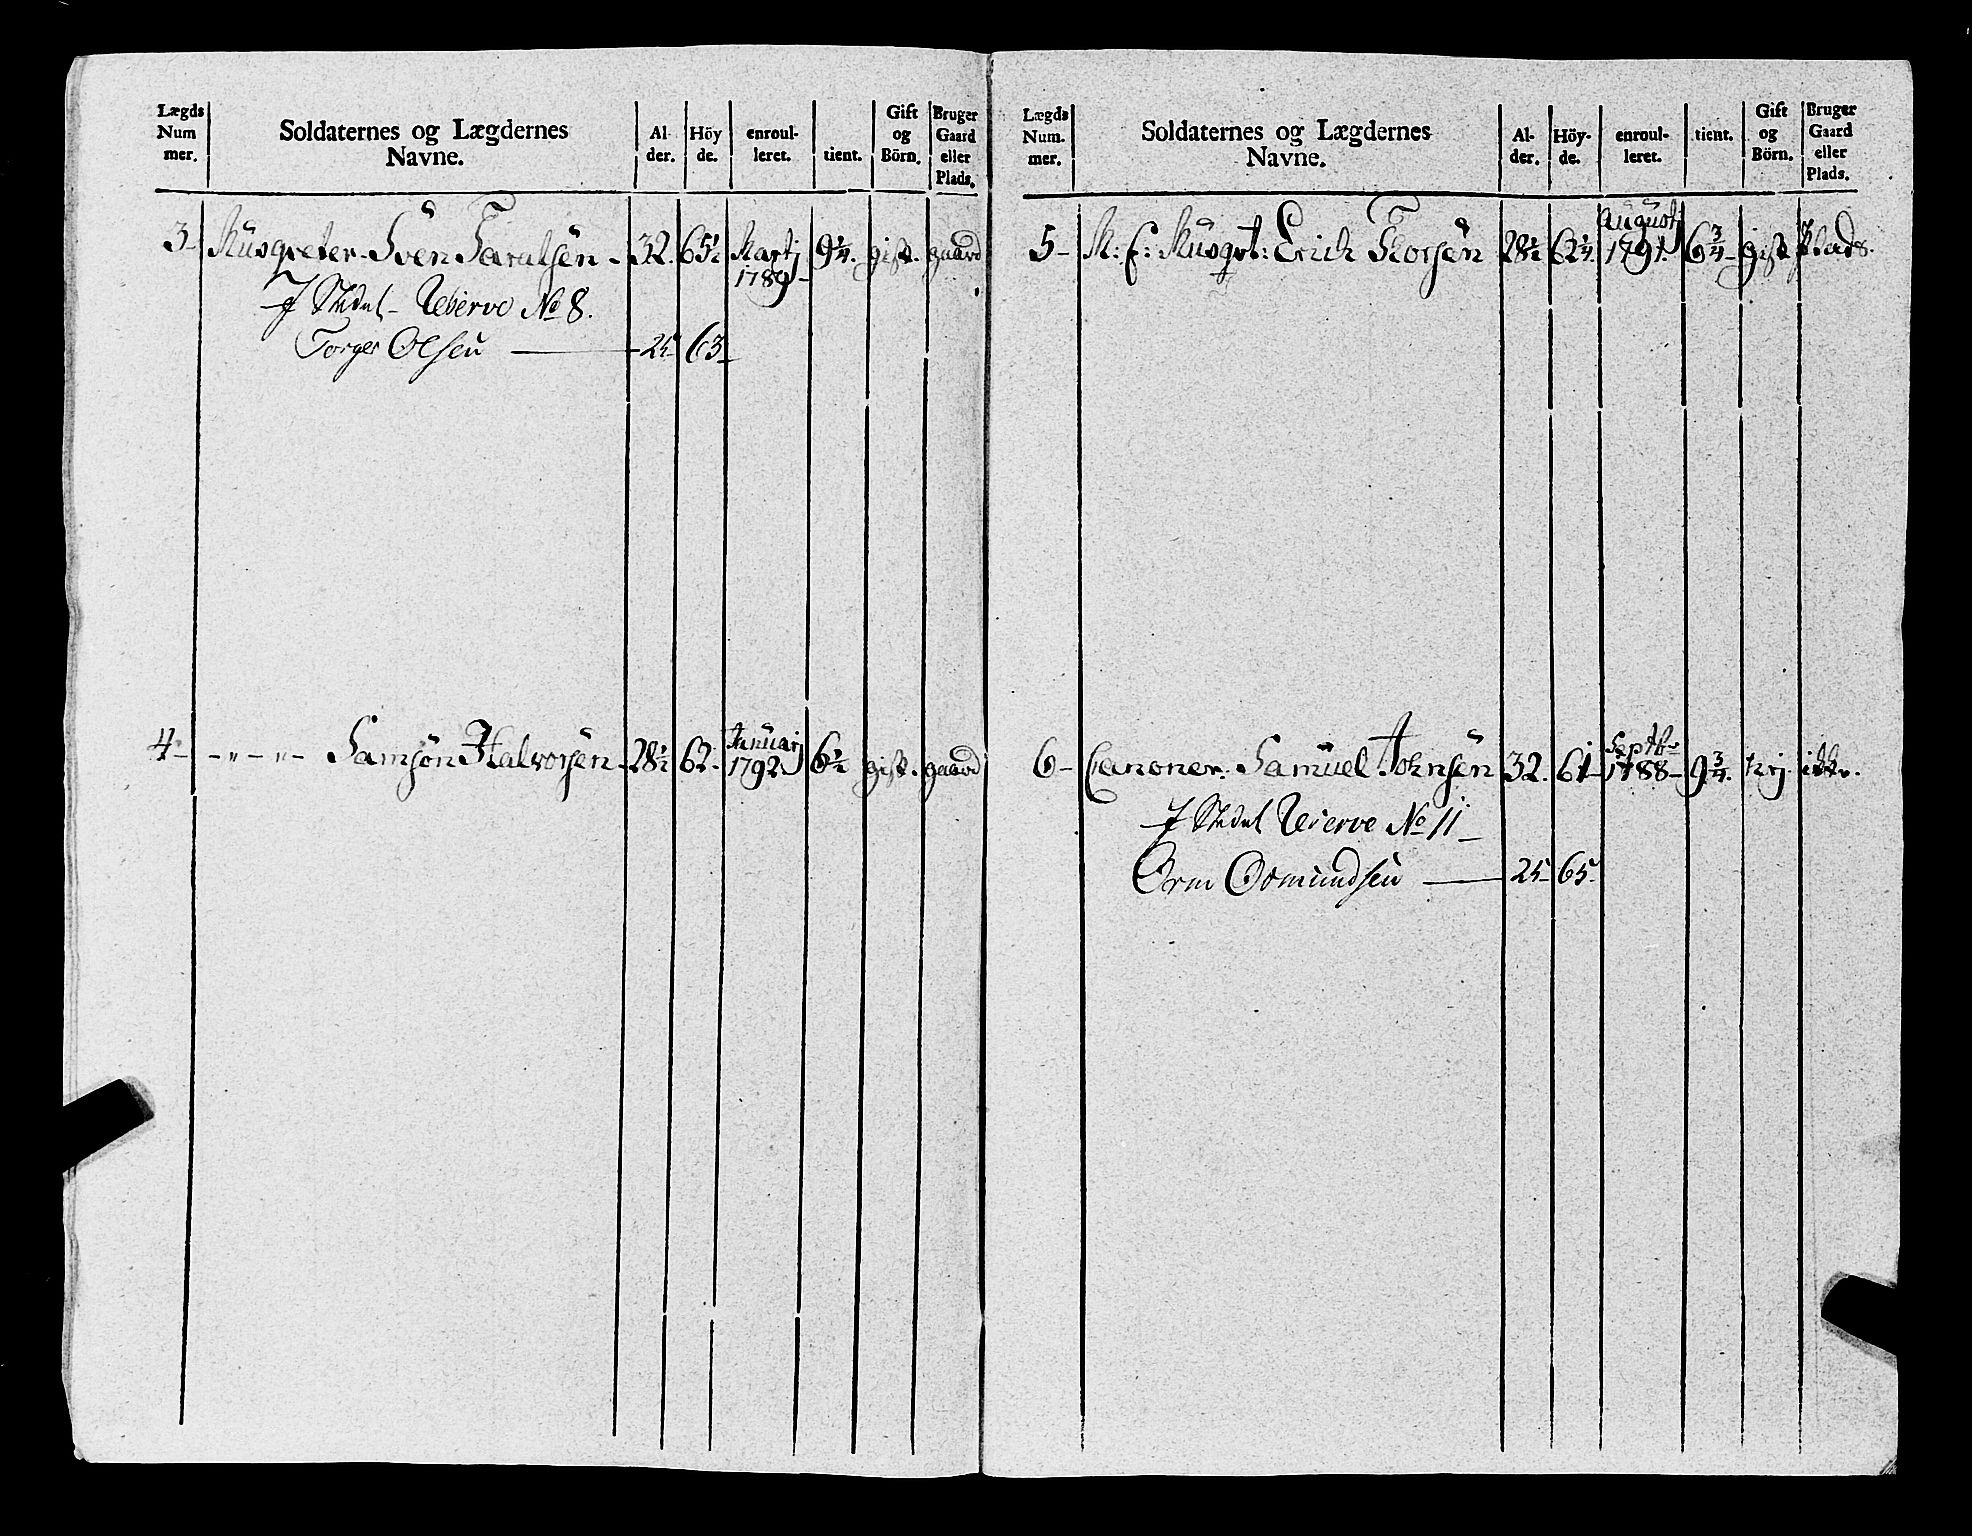 Lægds Num mer. Soldaternes og Lægdernes Navne. Al- der. Höy de. enroul- leret. tient. Gift og Börn. Bruger Gaard eller Plads.
3 - Musqveter Sven Tarulsen - 32. 65½ Martj 1789 - 9¼. gift. gaard
J Stedet - Reserve No 8.
Torger Olsen 25 63
4 - - " - " - Samson Halvorsen - 28½ 62. Januarj 1792. 6½ gift. gaard
Lægds Num. mer. Soldaternes og Lægdernes Navne. Al- der. Höy- de. enroul- leret. tient. Gift og Börn. Bruger Gaard eller Plads.
5 - Musqvt: Erich Thorsen 28½ 62¼ Augustj 1791. 6¾ - gift Plads.
6 - Canoner. Samuel Johnsen 32. 61 Septbr 1788 - 9¾. frj. ikke.
J Stedet Reserve No 11 -
Orm Osmundsen 25 - 65